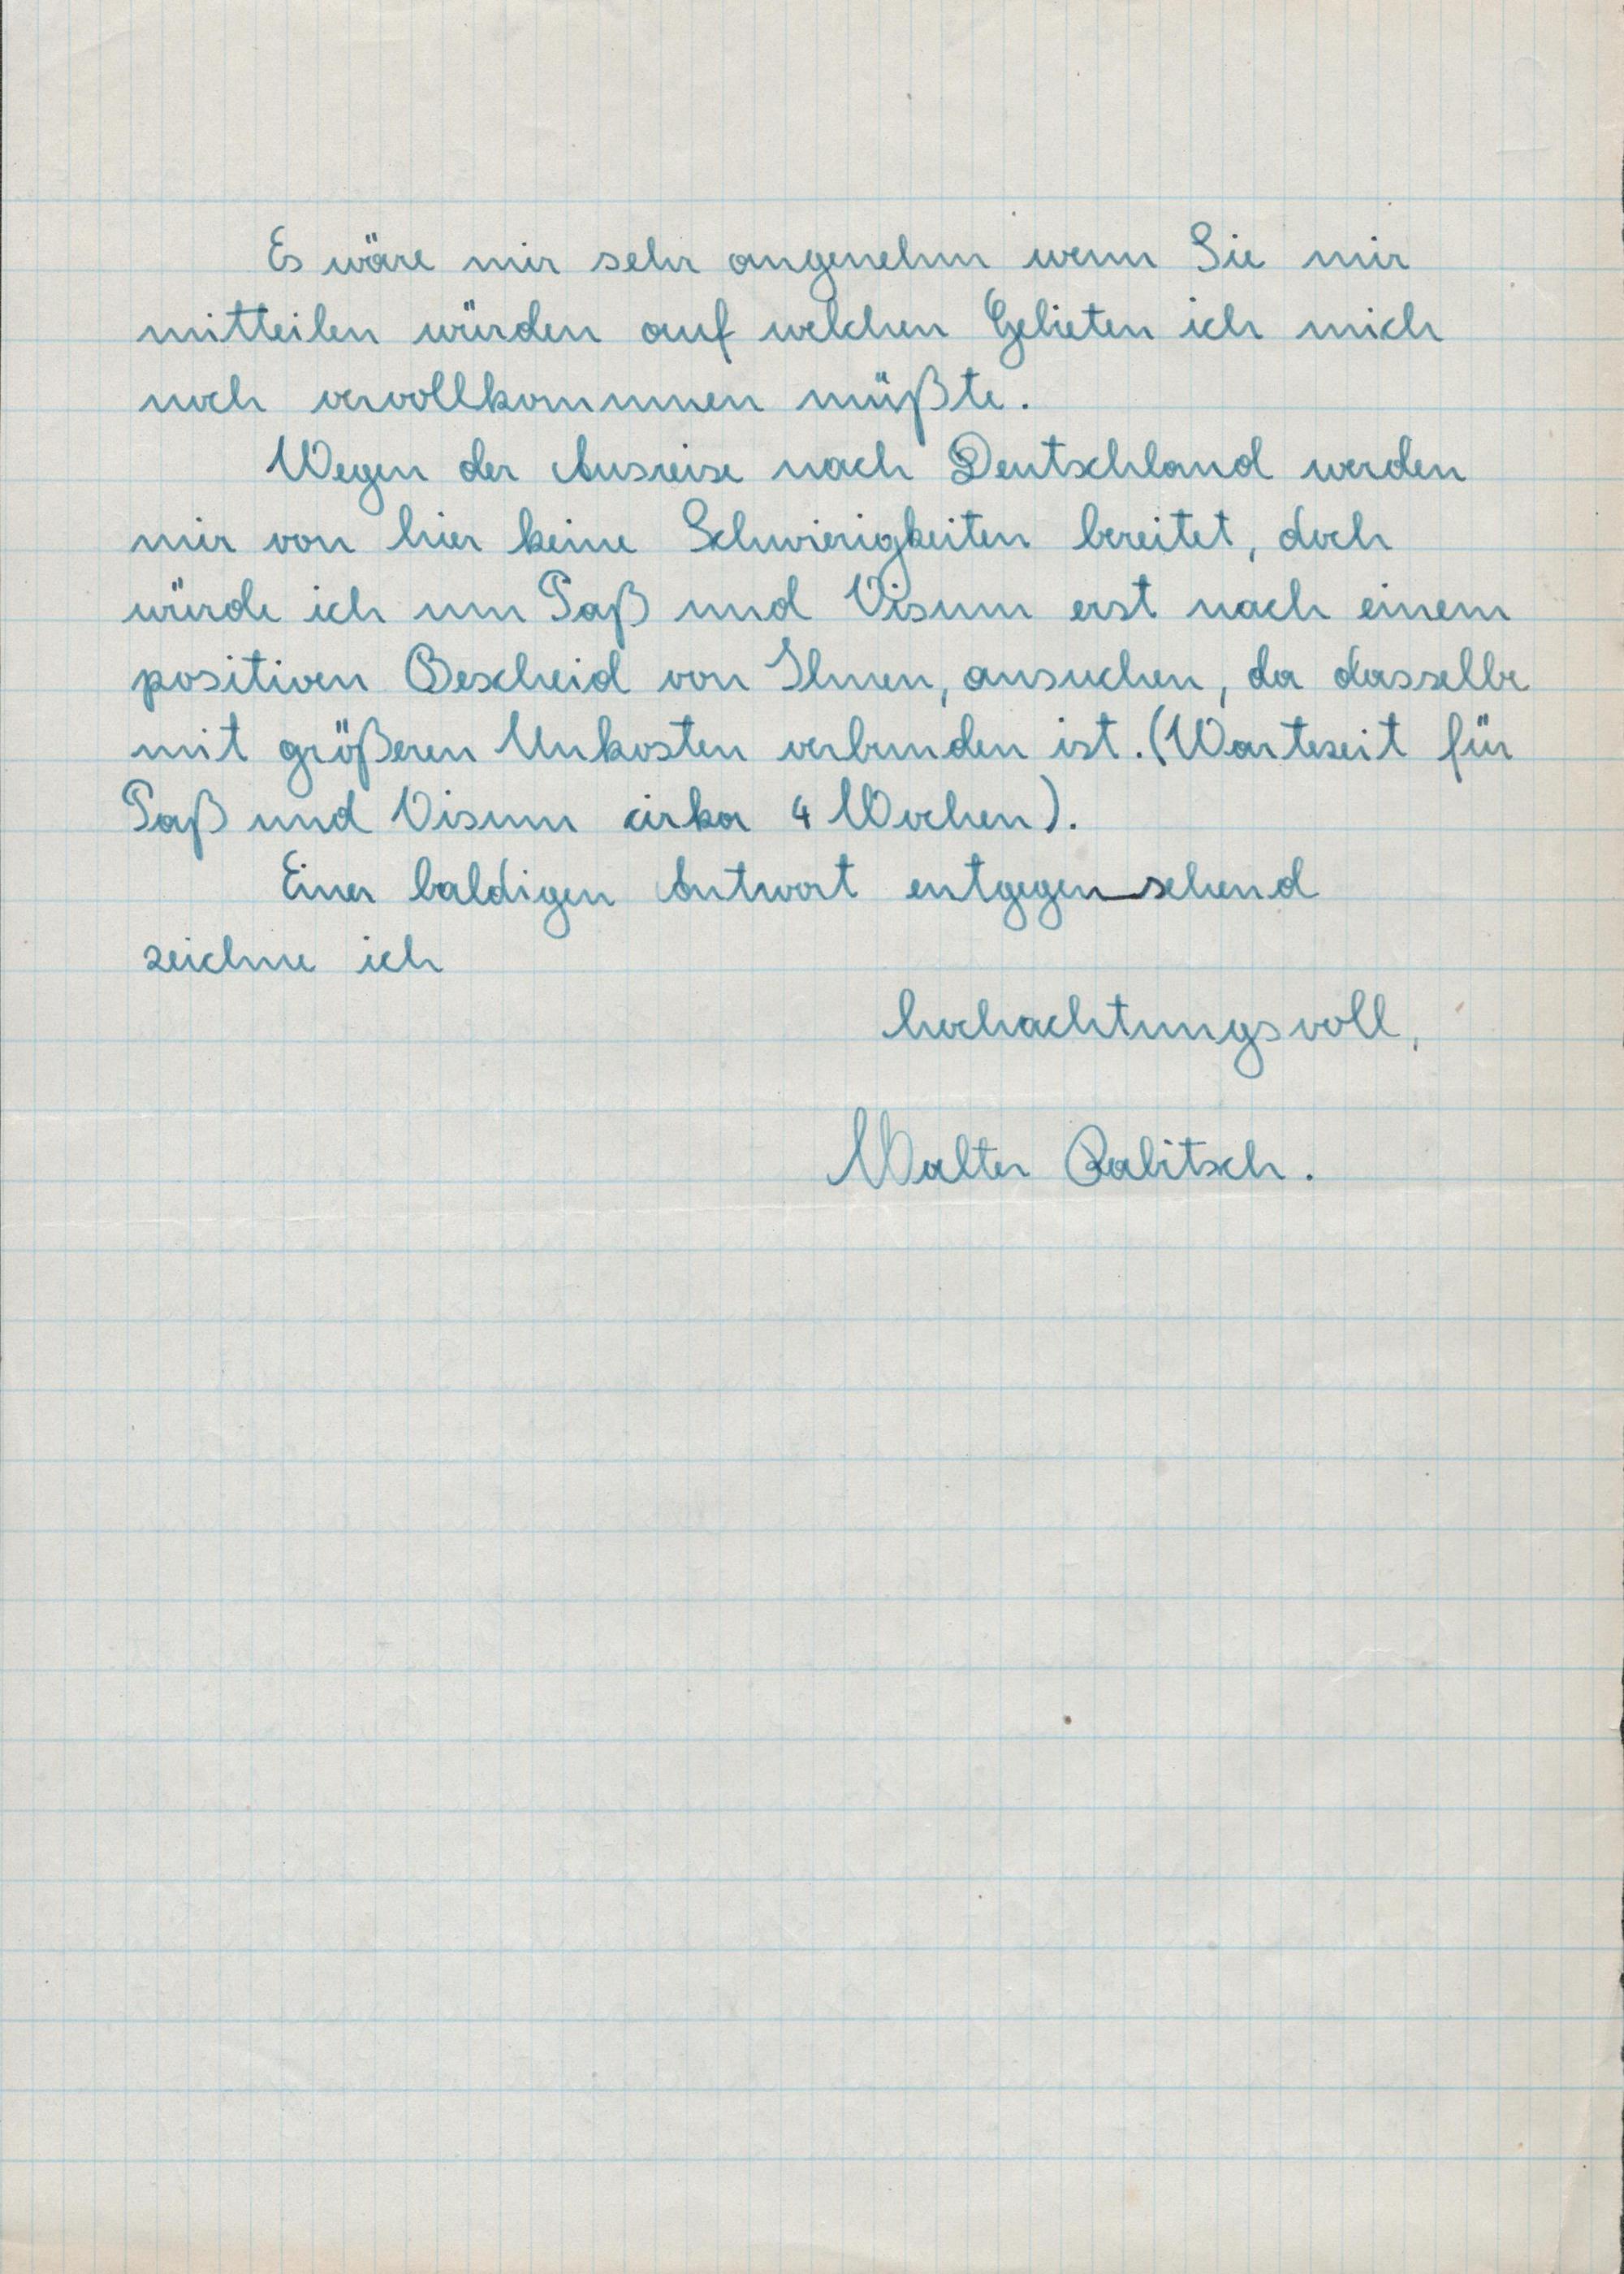 Es wäre mir sehr angenehm wenn Sie mir
mitteilen würden auf welchen Gebieten ich mich
noch vervollkommnen müßte.
Wegen der Ausreise nach Deutschland werden
mir von hier keine Schwierigkeiten bereitet, doch
würde ich um Paß und Visum erst nach einem
positiven Bescheid von Ihnen, ansuchen, da dasselbe
mit größeren Unkosten verbunden ist. (Wartezeit für
Paß und Visum cirka 4 Wochen).
Einer baldigen Antwort entgegensehend
zeichne ich
hochachtungsvoll,
Walter Rabitsch.